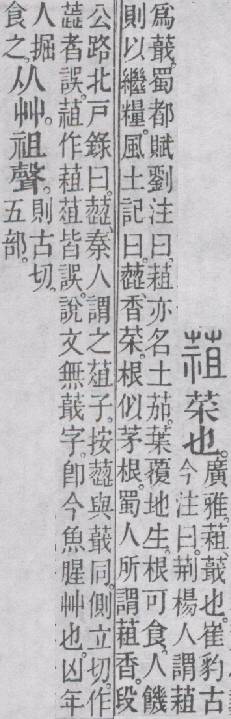 蒩 菜也。廣雅。蒩、蕺也。崔豹古
今注曰。荆楊人謂蒩
爲蕺。蜀都賦劉注曰。蒩亦名土茄。葉覆地生。根可食。人饑
則以繼糧。風土記曰。香菜。根似茅根。蜀人所謂蒩香。段
公路北戶錄曰。秦人謂之菹子。按與蕺同。側立切。作
者誤。蒩作葅菹皆誤。說文無蕺字。卽今魚腥艸也。凶年
人掘
食之。从艸。祖聲。則古切。
五部。